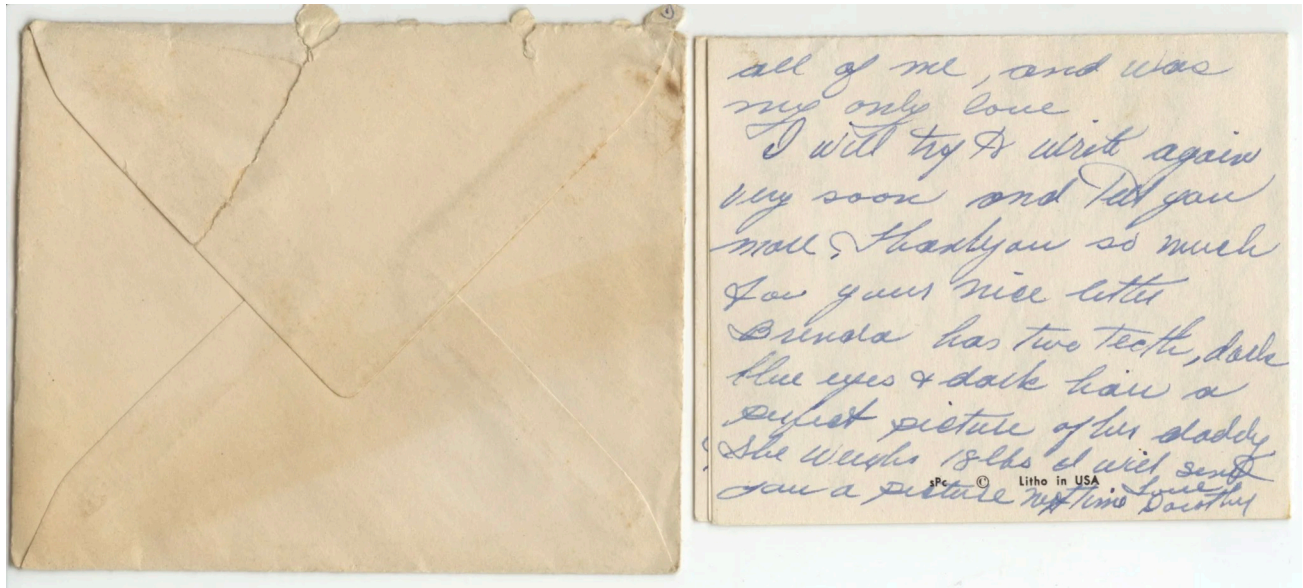 all of me, and was
my only love
I will try to write again
very soon and Tell you
more, Thankyou so much
for your nice letter
Brenda has two Teeth, dark
blue eyes & dark hair a
perfect picture of her daddy
She weighs 18 lbs I will send
you a picture next time Love
Dorothy
sPc © Litho in USA